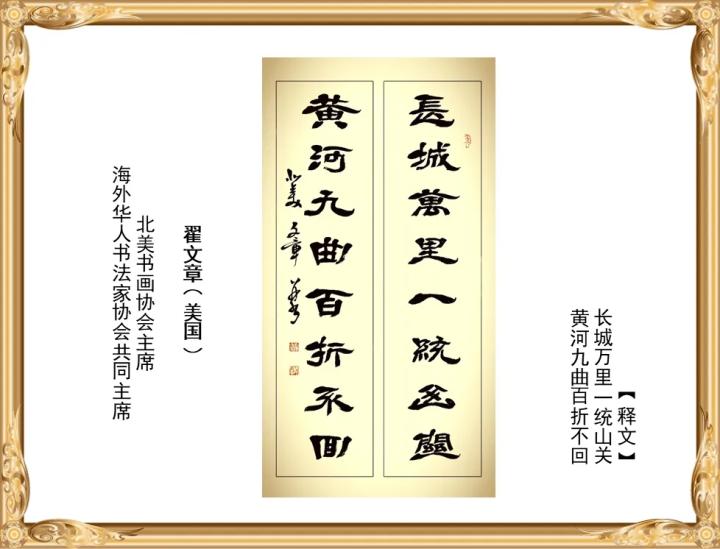 【释文】
长城万里一统山关
黄河九曲百折不回
長城萬里一統山關
黄河九曲百折不回
北美 文章 书
翟文章（美国）
北美书画协会主席
海外华人书法家协会共同主席